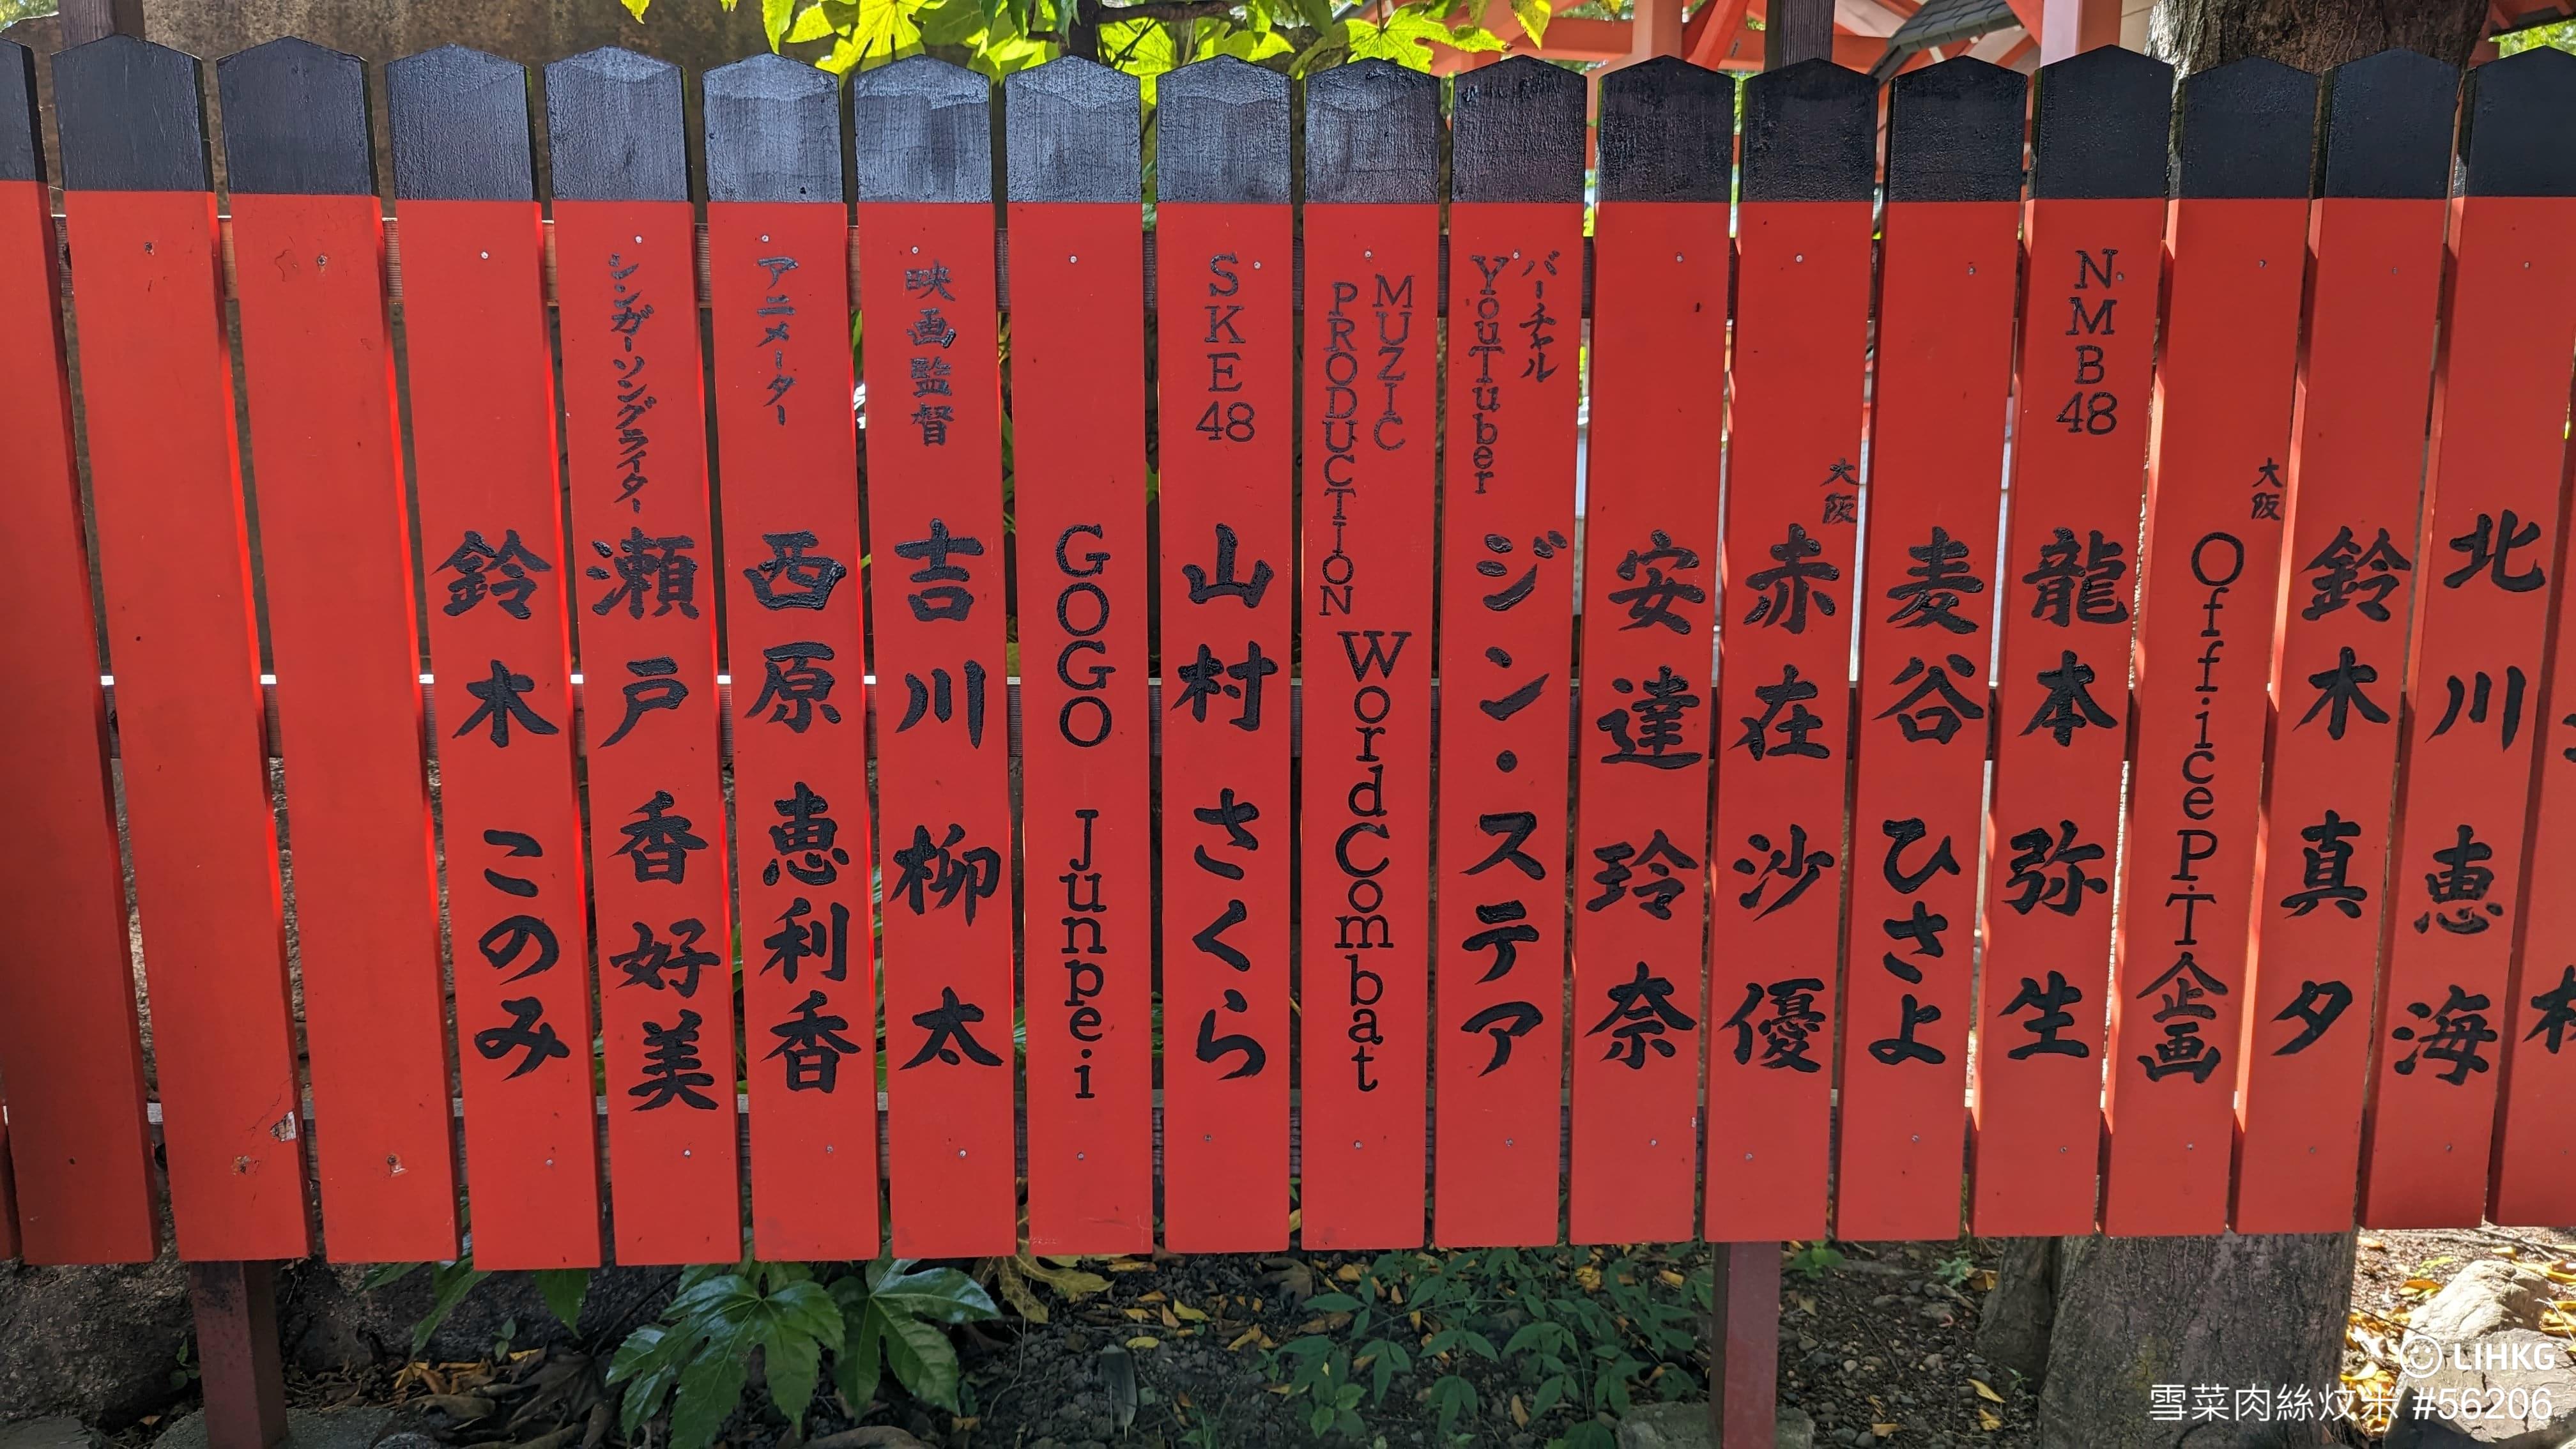 北川 恵海
鈴木 真夕
大阪
OfficeP.T企画
NMB48
龍本 弥生
麦谷 ひさよ
大阪
赤在 沙優
安達 玲奈
バーチャル
YouTuber
ジン・ステア
MUZIC
PRODUCTION
WordCombat
SKE48
山村 さくら
GOGO Junpei
映画監督
吉川 柳太
アニメーター
西原 恵利香
シンガーソングライター
瀬戸 香好美
鈴木 このみ
LIHKG
雪菜肉絲炆米 #56206